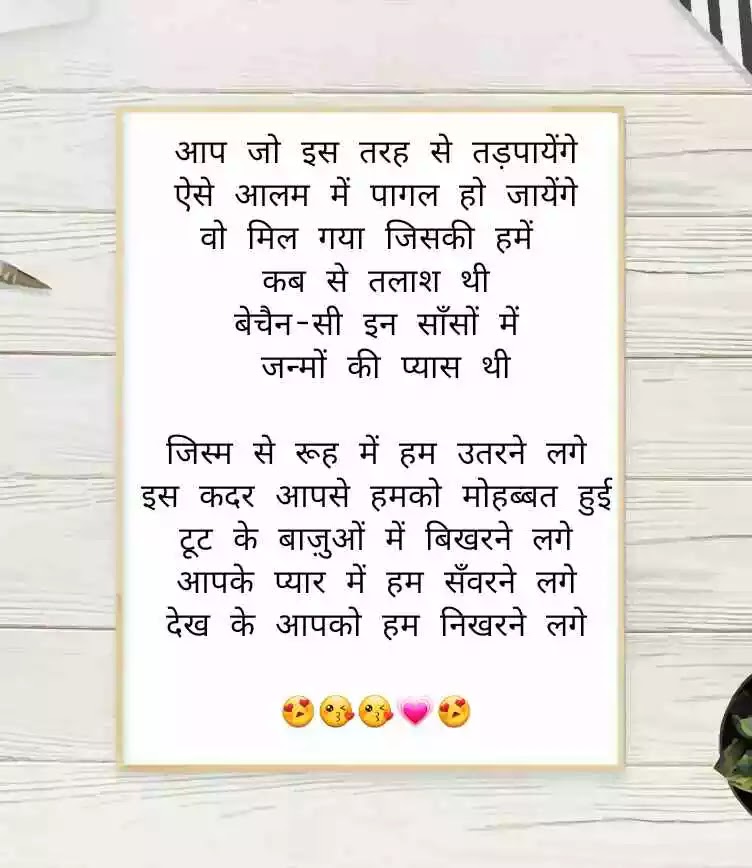 आप जो इस तरह से तड़पायेंगे
ऐसे आलम में पागल हो जायेंगे
वो मिल गया जिसकी हमें
कब से तलाश थी
बेचैन-सी इन साँसों में
जन्मों की प्यास थी

जिस्म से रूह में हम उतरने लगे
इस कदर आपसे हमको मोहब्बत हुई
टूट के बाज़ुओं में बिखरने लगे
आपके प्यार में हम सँवरने लगे
देख के आपको हम निखरने लगे

😍😘😘💗😍